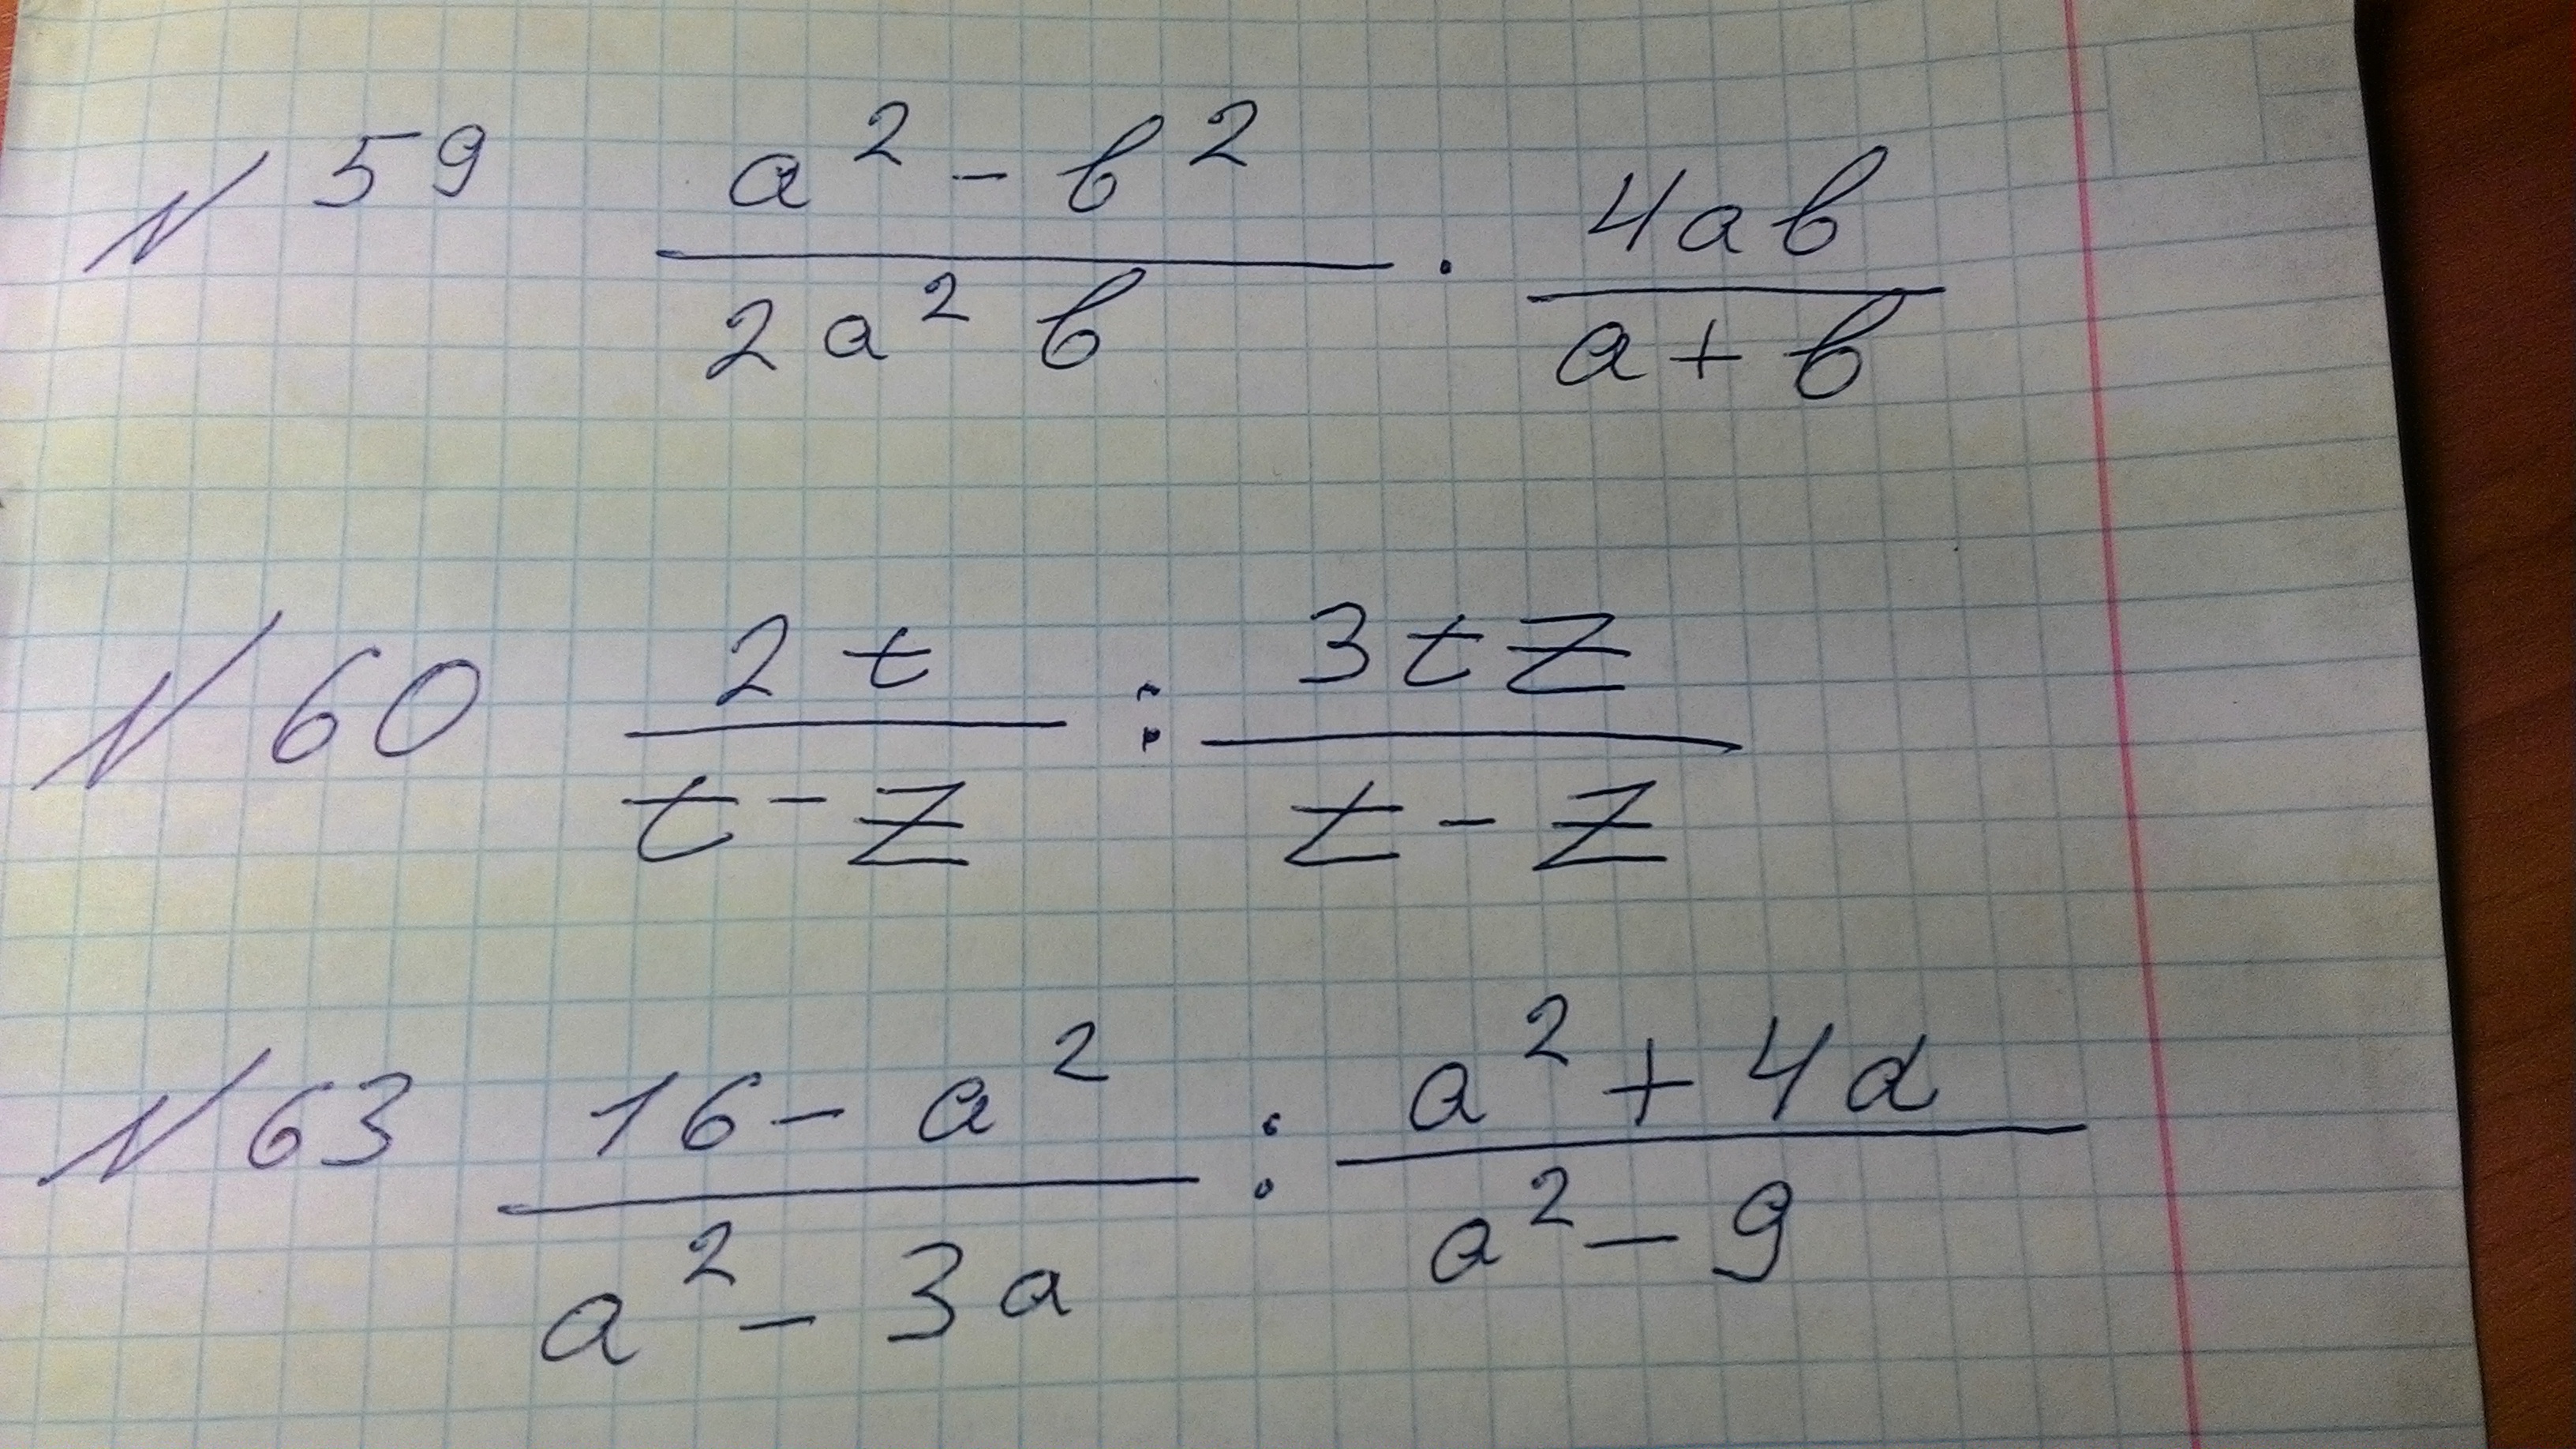 № 59 \frac{a^2 - b^2}{2a^2 b} \cdot \frac{4ab}{a + b}
№ 60 \frac{2t}{t - z} : \frac{3tz}{t - z}
№ 63 \frac{16 - a^2}{a^2 - 3a} : \frac{a^2 + 4a}{a^2 - 9}